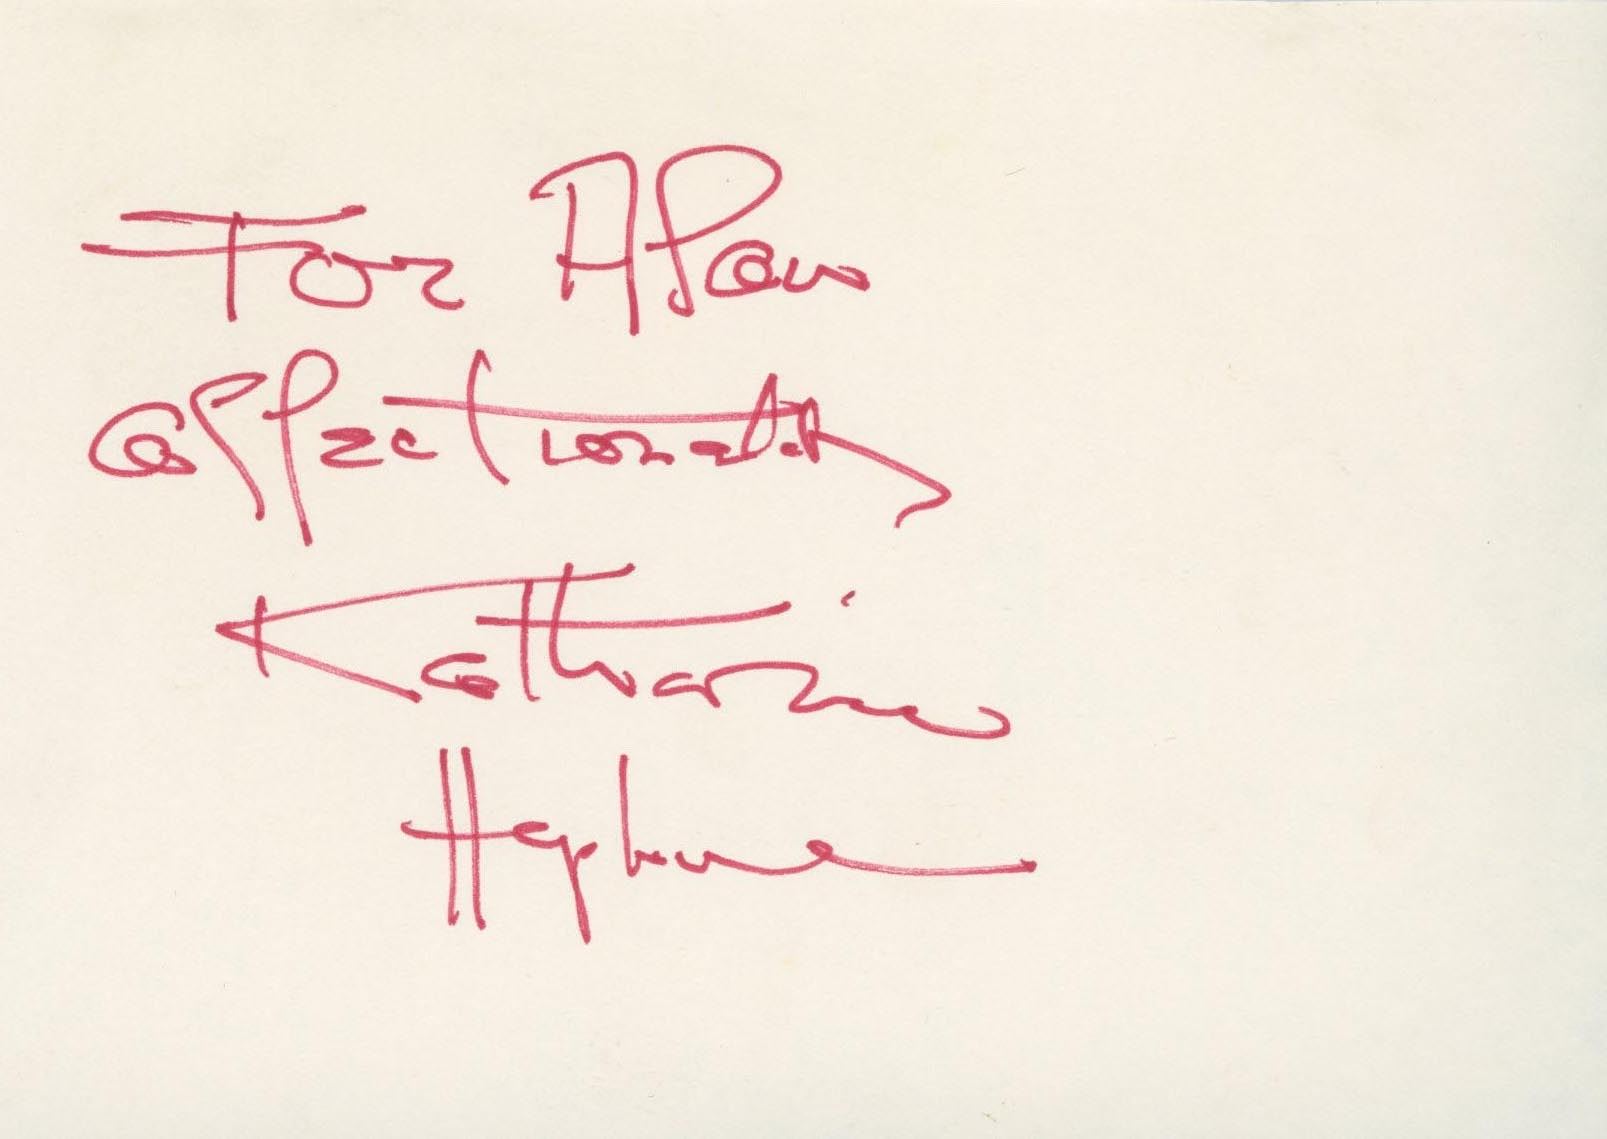 For Alan
affectionately
Katharine
Hepburn